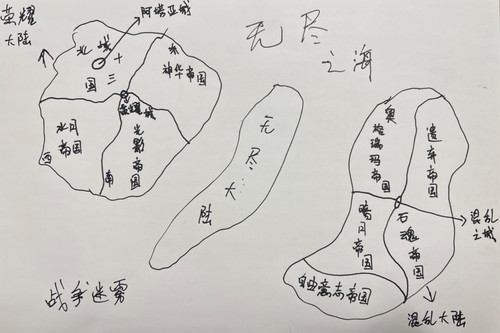 荣耀
大陆
阿塔亚城
北域
十
三
国
东
神华帝国
荣耀城
水月
帝国
西
光影帝国
南
无尽
之海
无尽大陆
奥格瑞玛帝国
遗弃帝国
暗月帝国
石魂帝国
混乱
之城
自由高志帝国
混乱大陆
战争迷雾